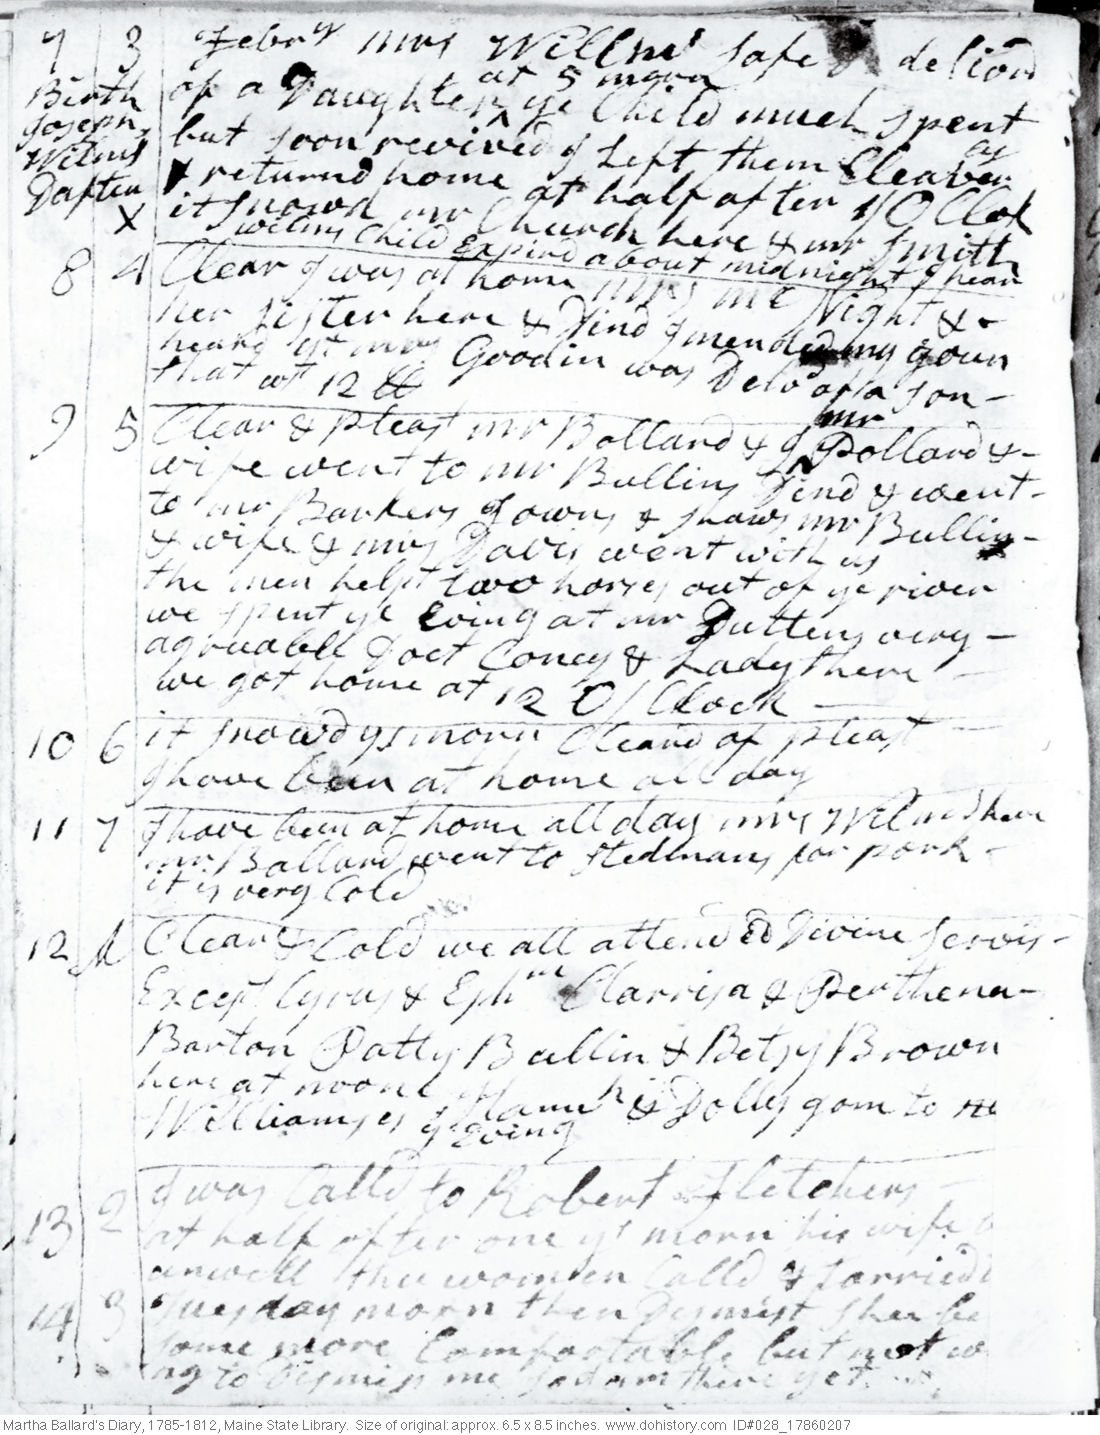 7 3 Febry mrs Willms safe delivrd
Birth of a Daughter at 5 morn ye Child much spent
Joseph Wilms Daften X but soon revived I Left them Cleaver as
& returnd home at half after 10 O Clok
it snowd mr Church here & mr Smith
wilms Child Expird about midnight I hear
8 4 Clear I was at home mrs mc Night &
her sister here & Dind I mended my goun
heard yt mrs Goodin was Delvd of a son
that at 12
9 5 Clear & pleast mr Ballard & I mr Pollard &
wife went to mr Bullins Dind & went
to mr Barkers Towns & Shaws mr Bullin
& wife & mrs Daves went with us
the men helpt two horses out of ye river
we spent ye Evingat mr Duttens very
agreuabll Doct Coney & Lady there
we got home at 12 O/Clock
10 6 it snowd ys morn Cleard of pleast
I have been at home all day
11 7 I have been at home all day mrs Wilms here
mr Ballard went to Stedmans for pork
it is very Cold
12 Clear & Cold we all attended Divine servis
Except Cyrus & Ephm Clarrisa & Parthena
Barton Patty Bullin & Betsy Brown
here at noon Hannh & Dolly gom to
Williamses ys Eving
13 2 I was Calld to Robert Fletchers
at half after one ys morn his wife
unwell thee women Calld & tarried
14 3 Tuesday morn then Dismist Shee
some more Comfortable but not
as to Dismiss me so I am there yet
Martha Ballard's Diary, 1785-1812, Maine State Library. Size of original: approx. 6.5 x 8.5 inches. www.dohistory.com ID#028_17860207